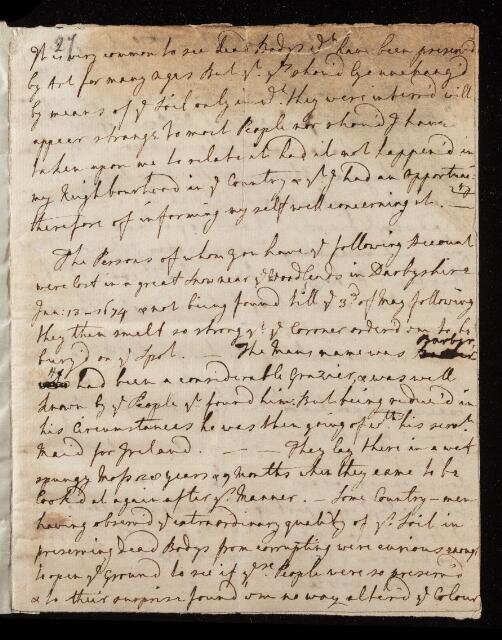 27
It is very common to see dead Bodys yt have been preserv'd
by Art for many ages But yt ys should lye unchang'd
by means of ye Soil only in wch they were interr'd will
appear strange to most People nor should I have
taken upon me to relate it had it not happen'd in
my Neighbourhood in ye Country & yt I had an opportuni-
ty
therefore of informing my self well concerning it. —
The Persons of whom you have ye following Account
were lost in a great Snow near ye Woodlands in Darbyshire
Jan: 12 - 1674 & not being found till ye 3d of May following
they then smelt so strong yt ye Coroner order'd 'em to be
bury'd on ye Spot. — The Mans name was Barber,
He had been a considerable Grazier, & was well
known by ye People yt found him: But being reduc'd in
his Circumstances he was then going off wth his servt
Maid for Ireland. — — They lay there in a wet
spungy Moss 28 years & 9 months when they came to be
look'd at again after ys Manner. — Some Country-men
having observ'd ye extraordinary quality of ys Soil in
preserving Dead Bodys from corrupting were curious enough
to open ye Ground to see if yse People were so preserv'd
& to their surprise found 'em no way alter'd ye Colour